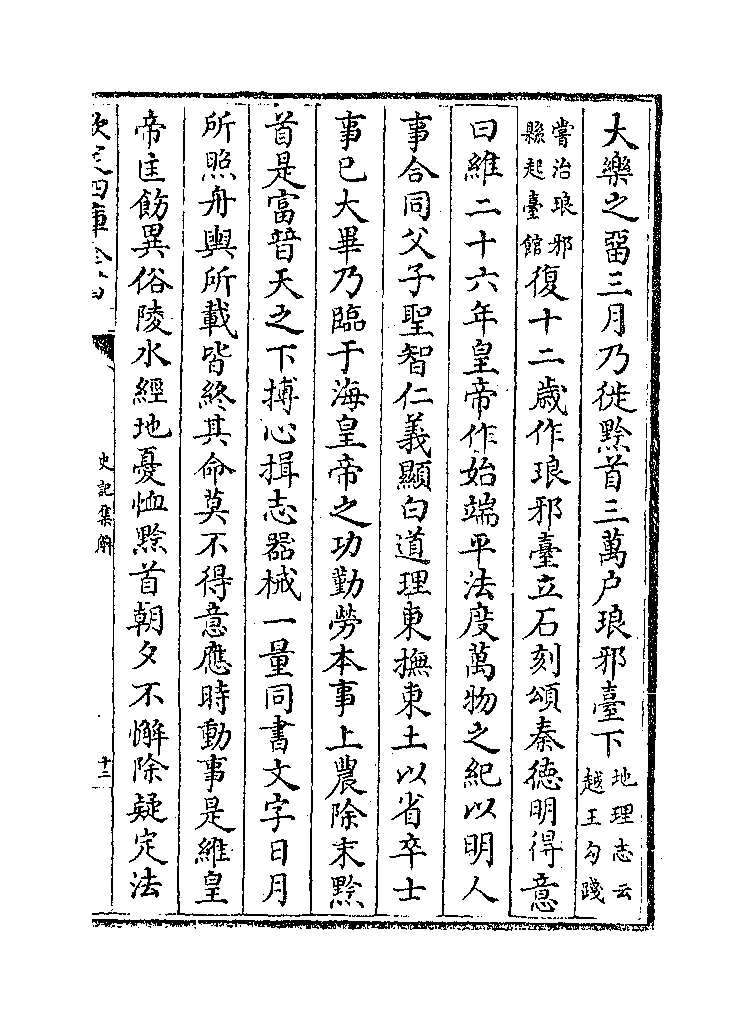 大樂之留三月乃徙黔首三萬户琅邪臺下地理志云越王勾踐
嘗治琅邪縣起臺館復十二歲作琅邪臺立石刻頌秦德明得意
曰維二十六年皇帝作始端平法度萬物之紀以明人
事合同父子聖智仁義顯白道理東撫東土以省卒士
事已大畢乃臨于海皇帝之功勤勞本事上農除末黔
首是富普天之下摶心揖志器械一量同書文字日月
所照舟輿所載皆終其命莫不得意應時動事是維皇
帝匡飭異俗陵水經地憂恤黔首朝夕不懈除疑定法
欽定四庫全書
史記集解
十二